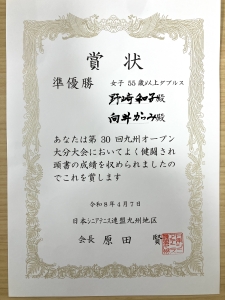 賞状
準優勝 女子 55歳以上ダブルス
野崎和子殿
向井かつみ殿
あなたは第30回九州オープン
大分大会においてよく健闘され
頭書の成績を収められましたの
でこれを賞します
令和8年4月7日
日本シニアテニス連盟九州地区
会長 原田 賢